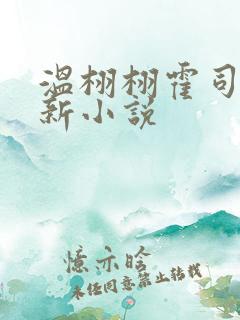 温栩栩霍司
新小说
忆亦晗
未经同意禁止转载